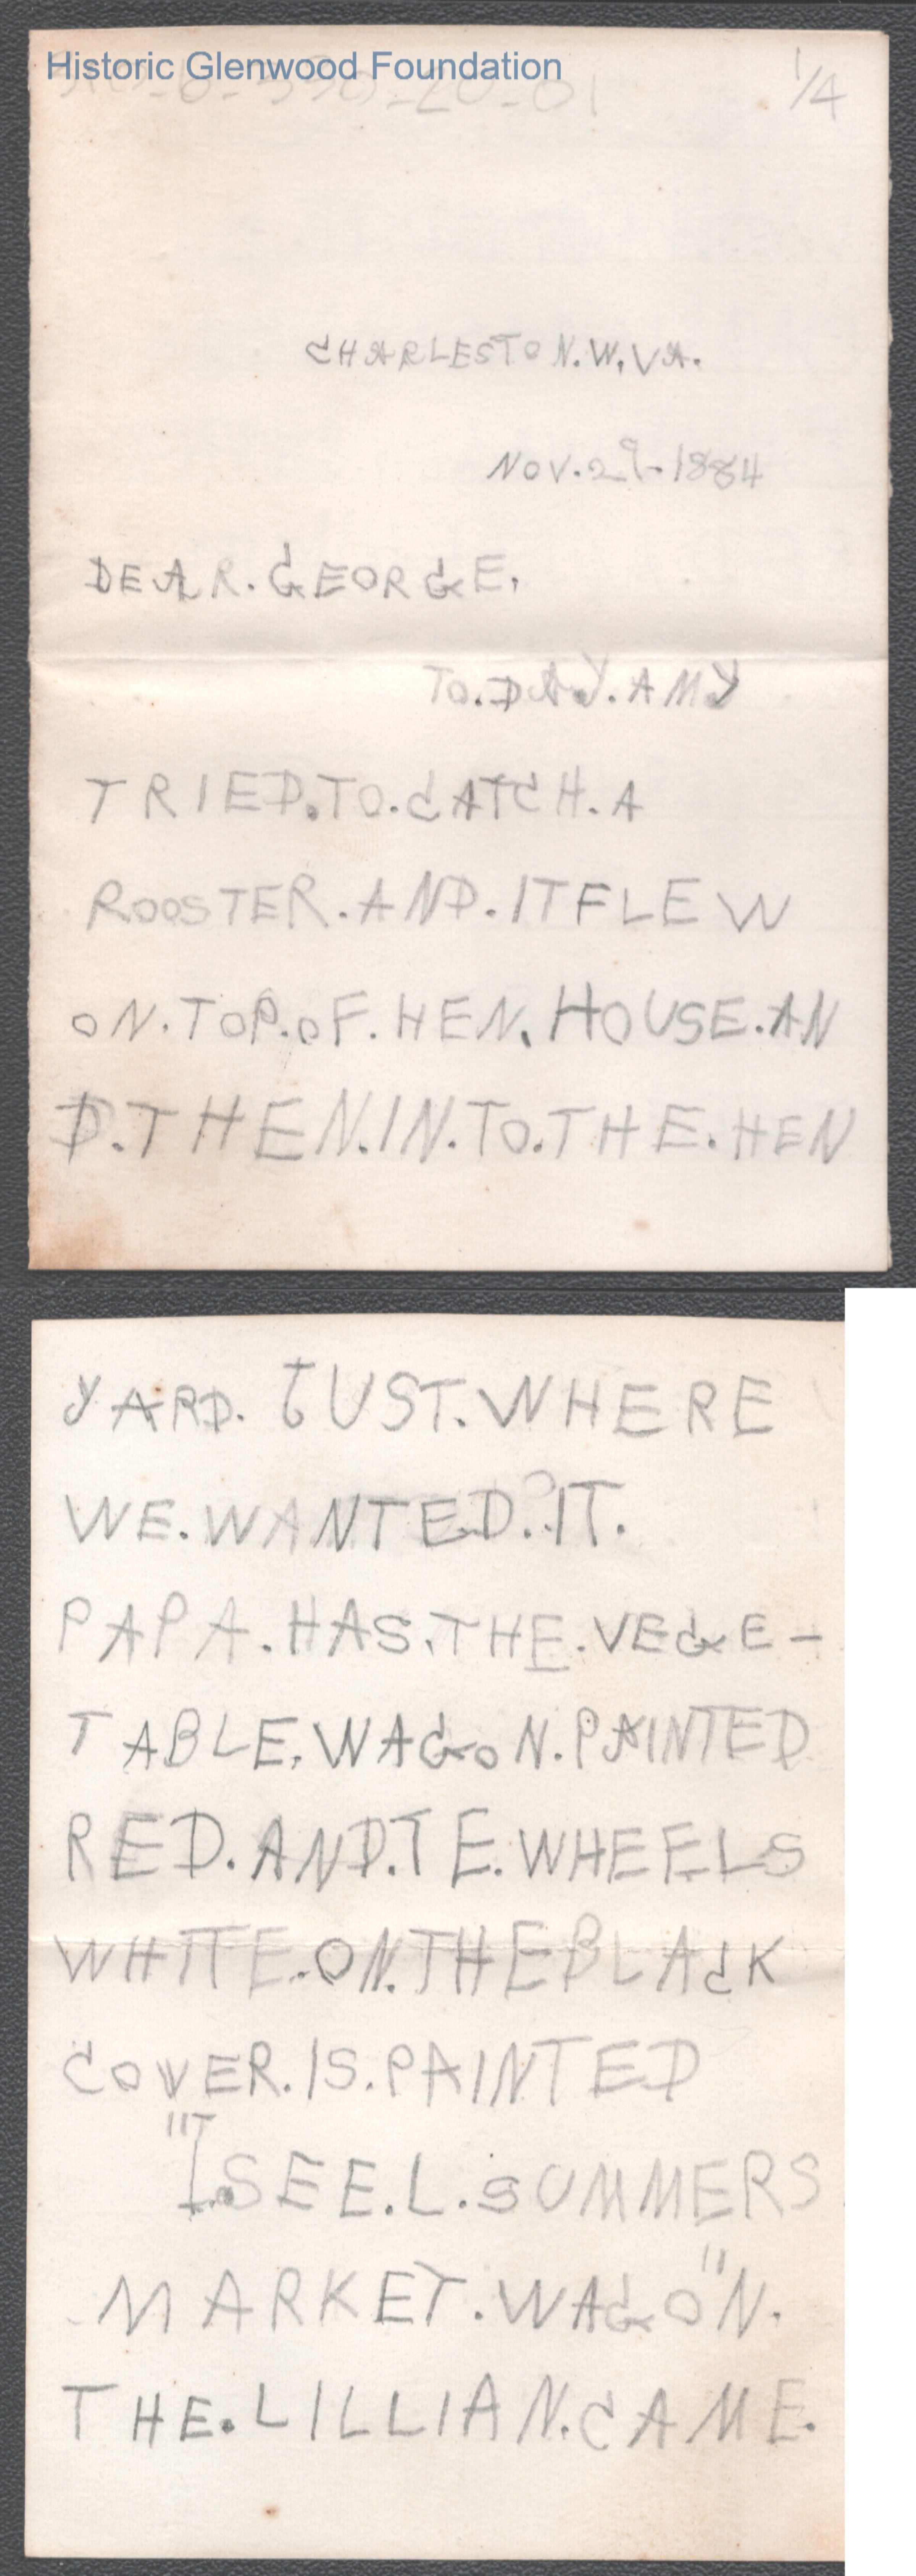 Historic Glenwood Foundation
1/4
CHARLESTON.W.VA.
NOV.29-1884
DEAR.GEORGE,
TO.DAY.AMY
TRIED.TO.CATCH.A
ROOSTER.AND.ITFLEW
ON.TOP.OF.HEN.HOUSE.AN
D.THEN.IN.TO.THE.HEN
YARD. JUST.WHERE
WE.WANTED.IT.
PAPA.HAS.THE.VEGE-
TABLE.WAGON.PAINTED
RED.AND.TE.WHEELS
WHITE.ON.THE BLACK
COVER.IS.PAINTED
"I.SEE.L.SUMMERS
MARKET.WAGON."
THE.LILLIAN.CAME.